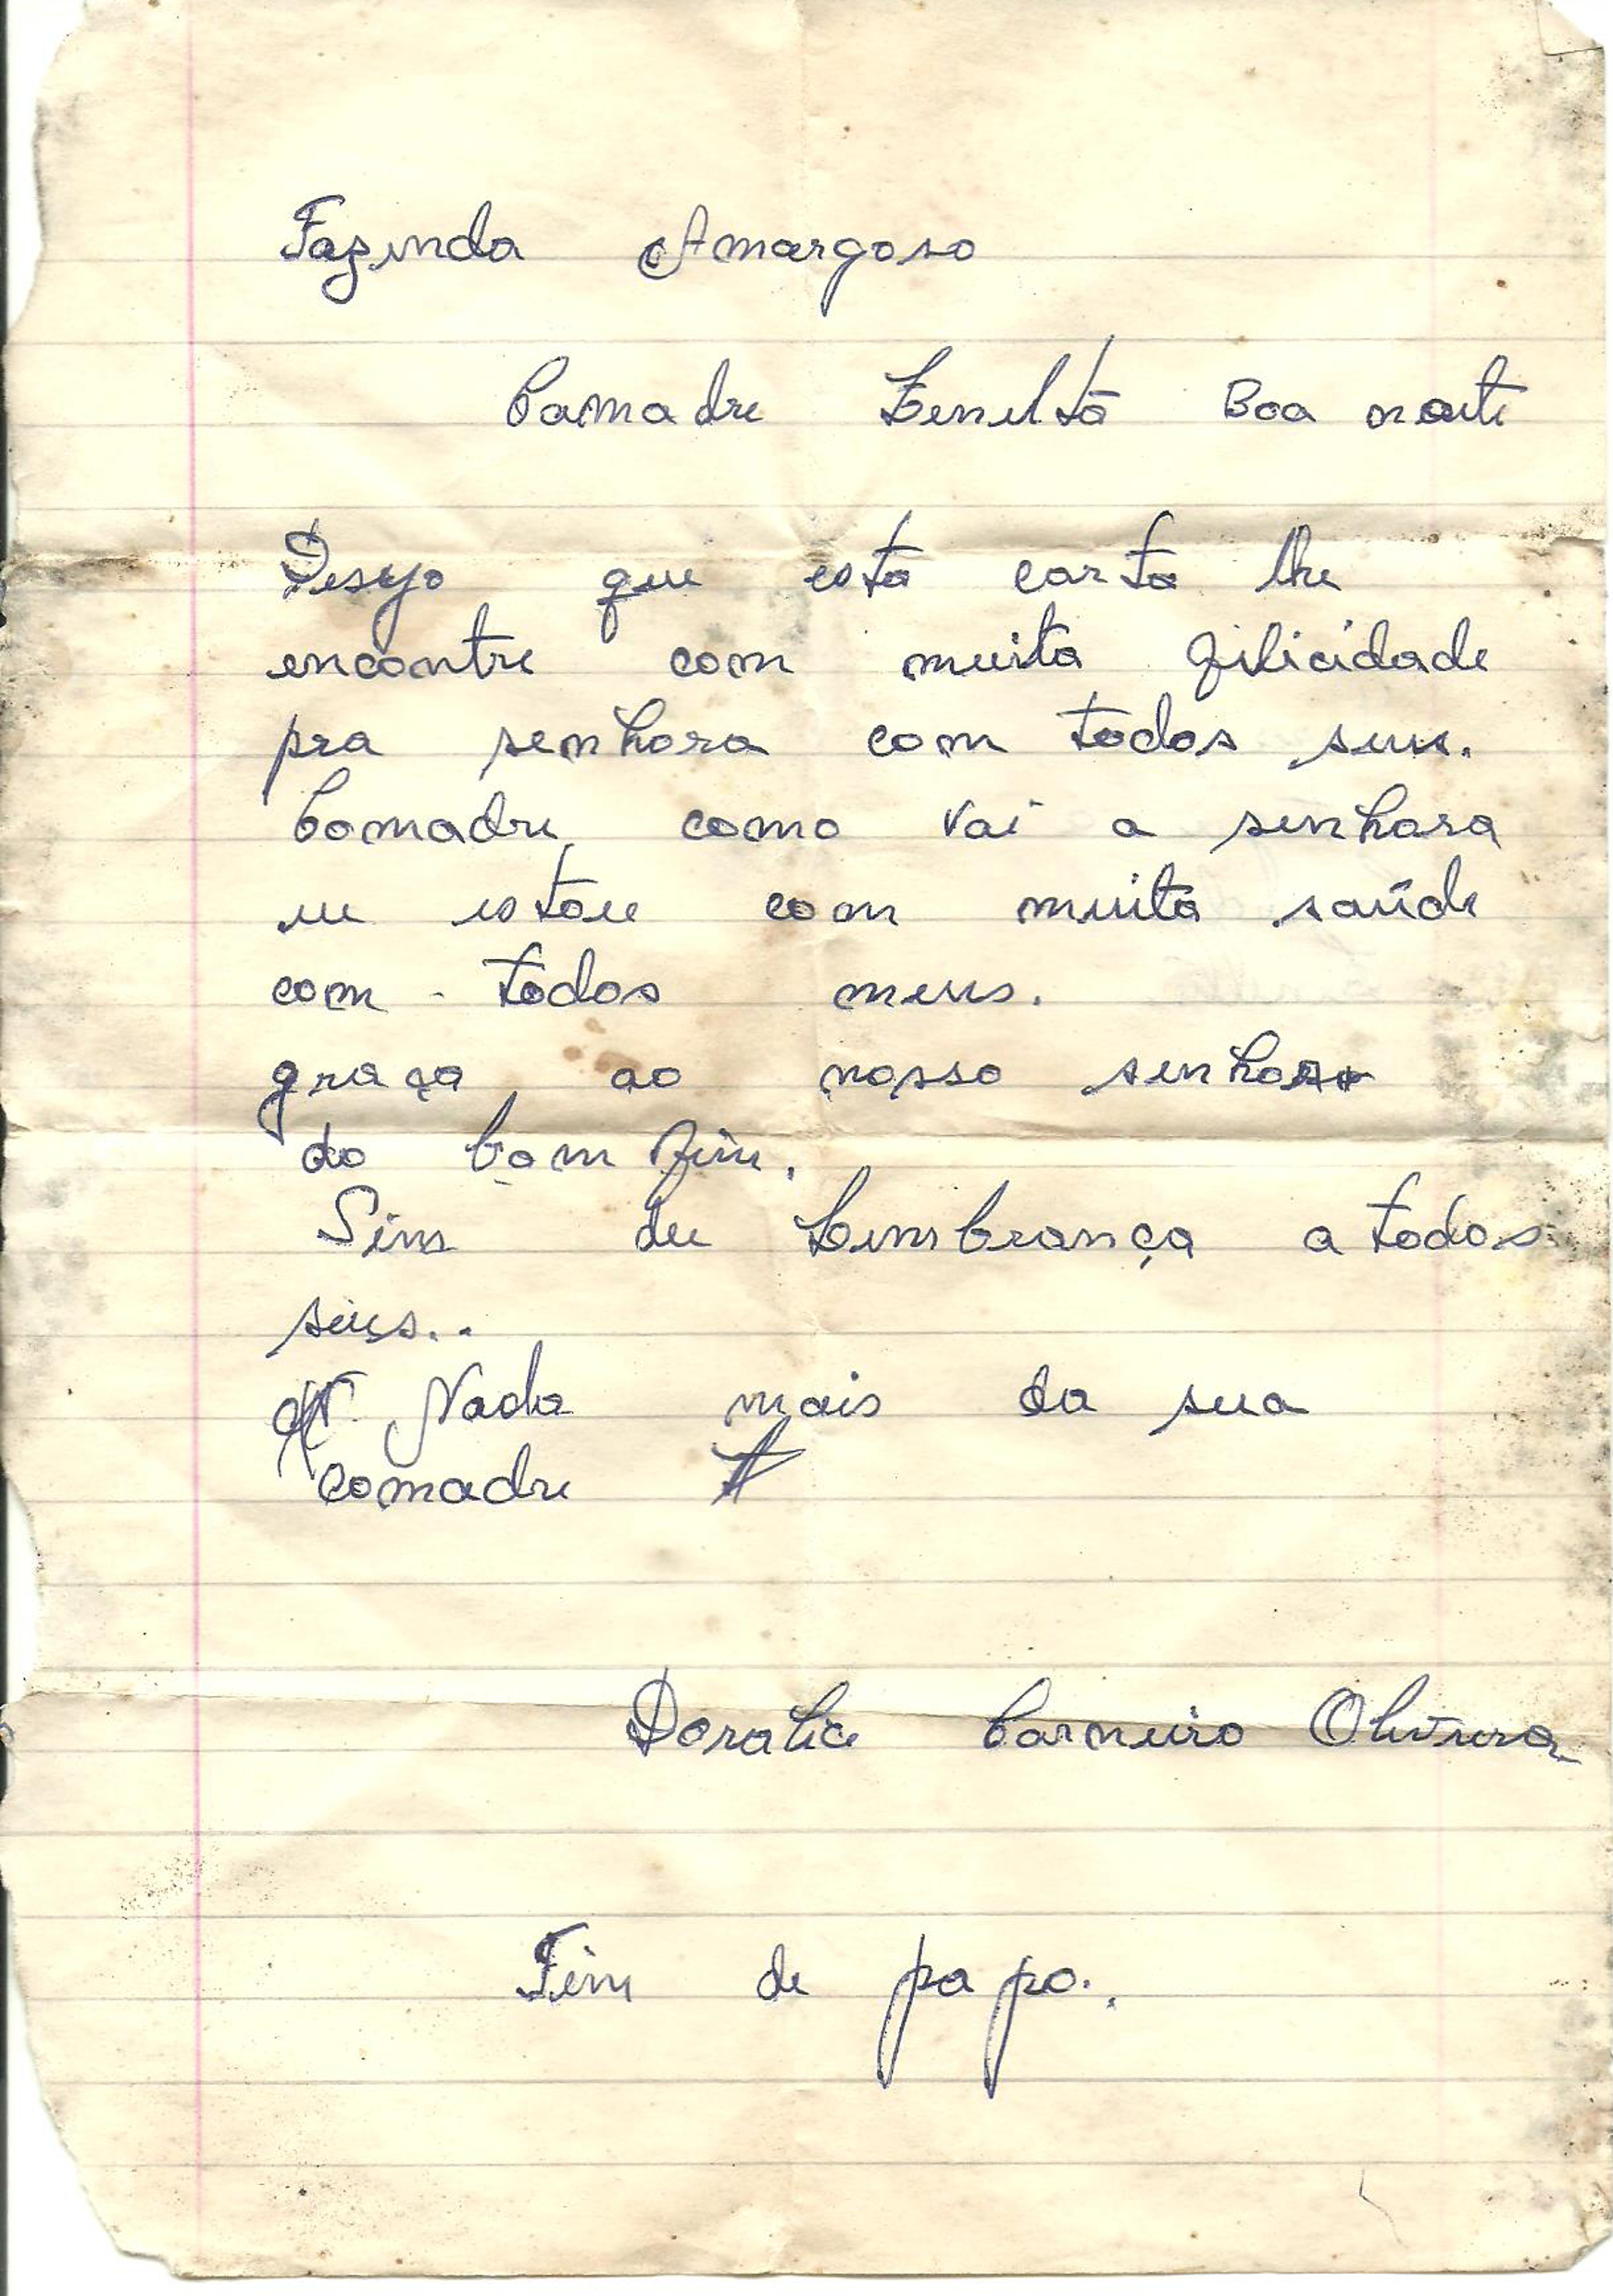 Fazenda Amargoso
Comadre Zenelta Boa noite
Desejo que esta carta lhe
encontre com muita filicidade
pra senhora com todos seus.
Comadre como vai a senhora
eu estou com muita saúde
com todos meus.
graça ao nosso senhor
do bom fim.
Sim de Lembrança a todos
seus..
Nada mais da sua
comadre
Doralice Carneiro Oliveira
Fim de papo..